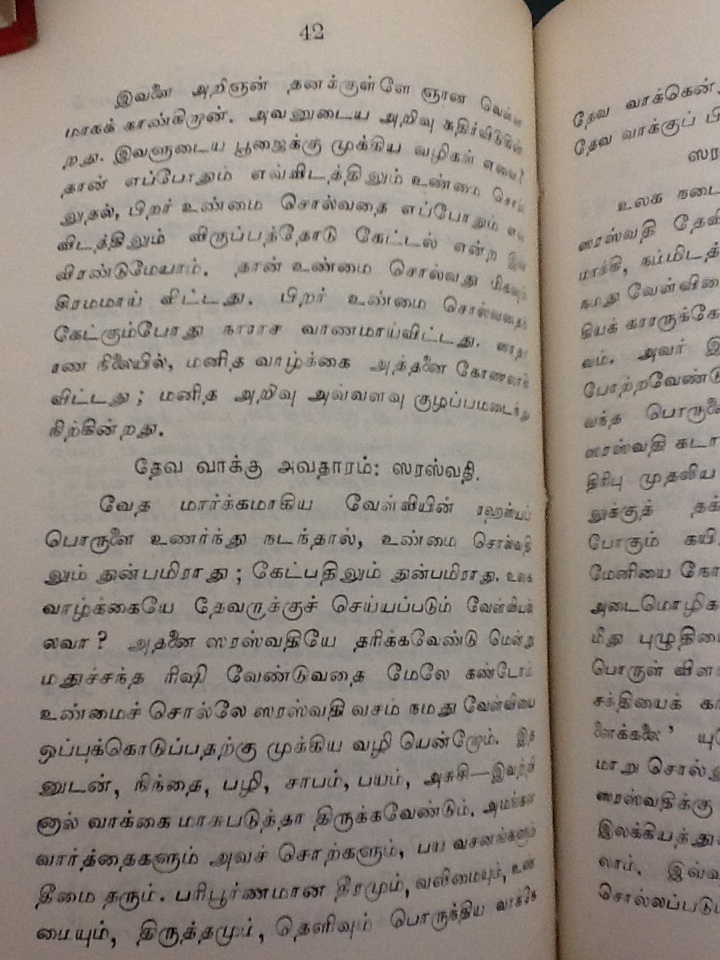 42
இவளை அறிஞன் தனக்குள்ளே ஞான வெள்ள
மாகக் காண்கிறான். அவனுடைய அறிவு கதிர்விடுகின்
றது. இவளுடைய பூஜைக்கு முக்கிய வழிகள் எவை?
தான் எப்போதும் எவ்விடத்திலும் உண்மை சொல்
லுதல், பிறர் உண்மை சொல்வதை எப்போதும் எவ்
விடத்திலும் விருப்பத்தோடு கேட்டல் என்ற இவ்
விரண்டுமேயாம். தான் உண்மை சொல்வது மிகவும்
சிரமமாய் விட்டது. பிறர் உண்மை சொல்வதைக்
கேட்கும்போது நாராச வாணமாய்விட்டது. சாதா
ரண நிலையில், மனித வாழ்க்கை அத்தனை கோணலாக
விட்டது; மனித அறிவு அவ்வளவு குழப்பமடைந்து
நிற்கின்றது.
தேவ வாக்கு அவதாரம்: ஸரஸ்வதி.
வேத மார்க்கமாகிய வேள்வியின் ரஹஸ்யப்
பொருளை உணர்ந்து நடந்தால், உண்மை சொல்வதி
லும் துன்பமிராது; கேட்பதிலும் துன்பமிராது. உலக
வாழ்க்கையே தேவருக்குச் செய்யப்படும் வேள்வியல்
லவா? அதனை ஸரஸ்வதியே தரிக்கவேண்டு மென்று
மதுச்சந்த ரிஷி வேண்டுவதை மேலே கண்டோம்
உண்மைச் சொல்லே ஸரஸ்வதி வசம் நமது வேள்வியை
ஒப்புக்கொடுப்பதற்கு முக்கிய வழி யென்றோம். இத
னுடன், நிந்தை, பழி, சாபம், பயம், அசுசி—இவற்றி
னால் வாக்கை மாசுபடுத்தா திருக்கவேண்டும். அமங்கள
வார்த்தைகளும் அவச் சொற்களும், பய வசனங்களும்
தீமை தரும். பரிபூர்ணமான தீரமும், வலிமையும், உண்
மையும், திருத்தமும், தெளிவும் பொருந்திய வாக்கே
தேவ வாக்கென்
தேவ வாக்குப் பி
ஸர
உலக நடை
ஸரஸ்வதி தேவி
மாக்கி, நம்மிடத்
நமது வேள்வி
தியக் காரருக்கே
வம். அவர் இ
போற்றவேண்டு
லந்த பொருளை
ஸரஸ்வதி கடா
திரிபு முதலிய
லுக்குத் தக்
போகும் கயி
மேனியை நோ
அடைமொழிக
மீது புழுதியை
பொருள் விள
சக்தியைக் கா
ளைக்கலை' யு
மாறு சொல்
ஸரஸ்வதிக்கு
இலக்கியத்து
லாம். இவ்வ
சொல்லப்படு